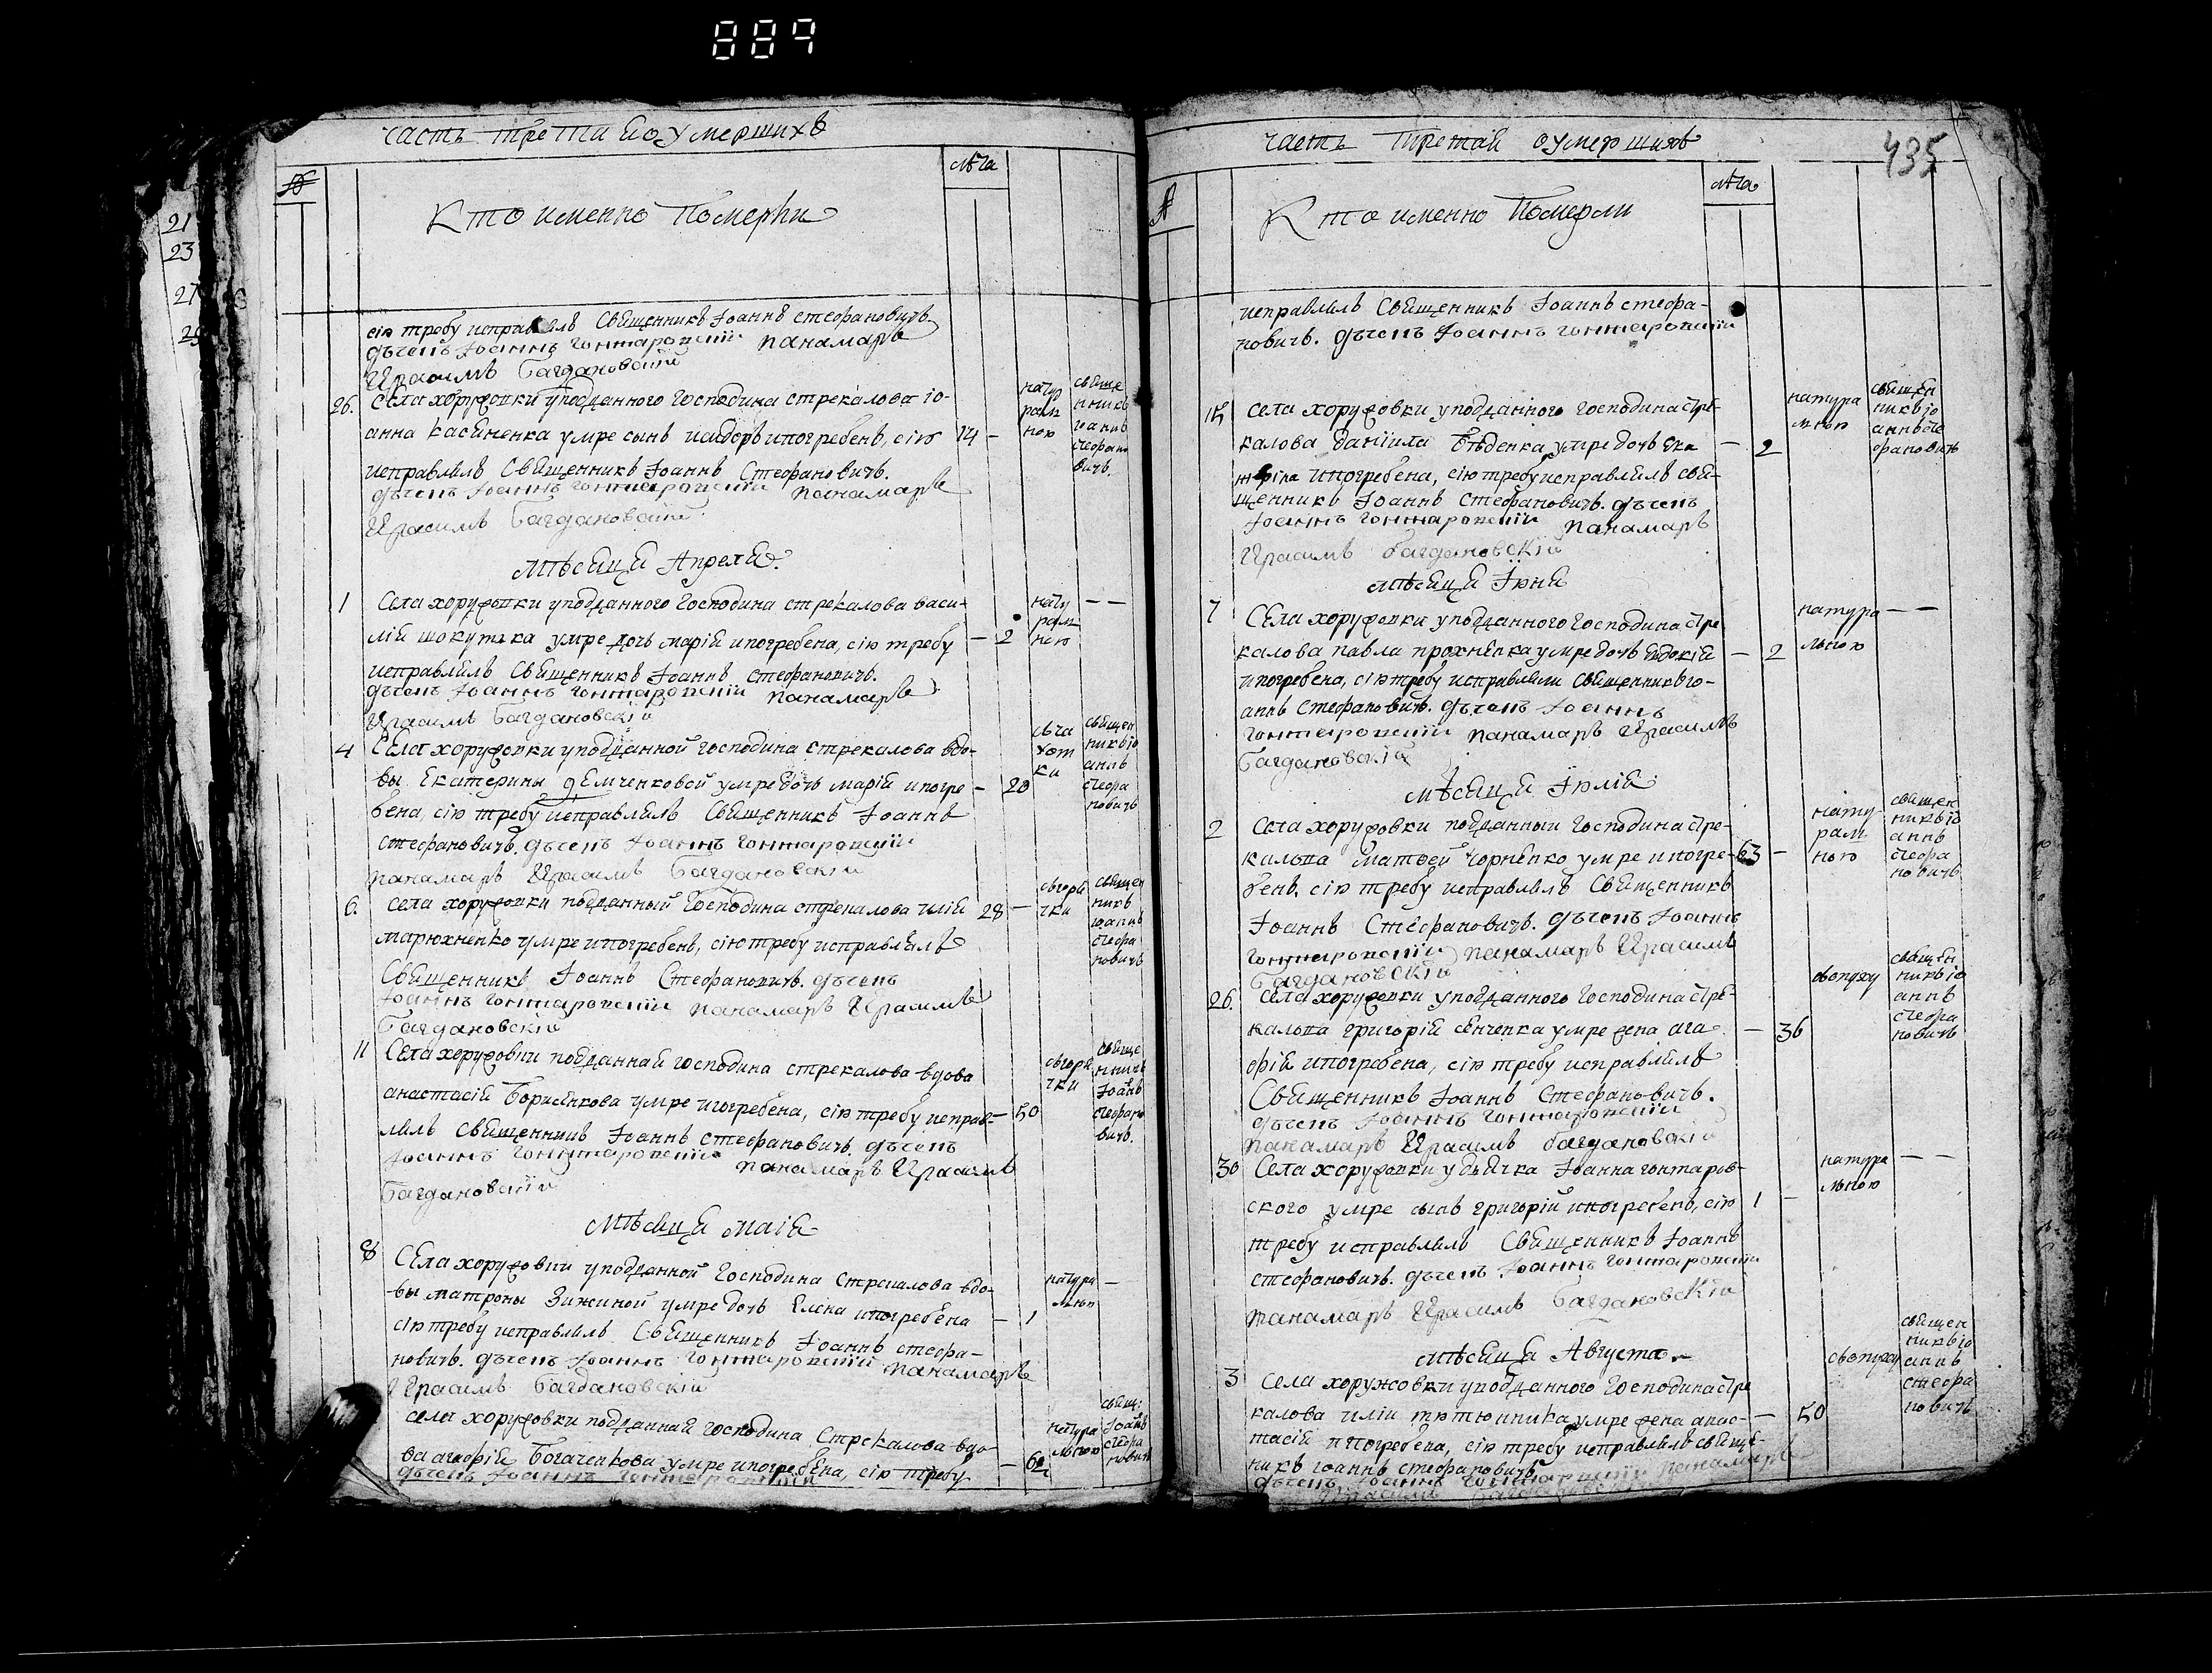 889
21
23
27
часть третти ѧ о умершихъ
лѣта
Кто именно Померъли
сію требу исправлялъ Свѧщенникъ Іоаннъ стефановичъ
дьѧчепъ Іоаннъ гонтаровскїй панамарь
Ѥрасимъ Багдановскїй
26. Села хоружовки уподданного господина стрекалова іо-
анна касѧненка умре сынъ исидоръ ипогребенъ, сію 14 –
исправлялъ Свѧщенникъ Іоаннъ Стефановичъ.
Іоаннъ гонтаровскїй панамарь
Ѥрасимъ Багдановскїй
нату
рал
ною
свѧще
нникъ
иоаннъ
стефано
вичъ.
Мѣсѧца Апрелѧ.
1 Села хоружовки уподданного господина стрекалова васи-
лїѧ шокутька умре дочь марїѧ ипогребена, сію требу – 2
исправлялъ Свѧщенникъ Іоаннъ стефановичъ.
Іоаннъ гонтаровскїй панамарь
Ѥрасимъ Багдановскїй
нату
рал
ною
4 Села хоружовки уподданной господина стрекалова вдо-
вы Екатерины дЕмченковой умре дочь марїѧ ипогре – 20
бена, сію требу исправлялъ Свѧщенникъ Іоаннъ
стефановичъ. Іоаннъ гонтаровскїй
панамарь Ѥрасимъ Багдановскїй
съча
хот
ки
свѧщен
никъ іо
аннъ
стефа
новичъ
6. Села хоружовки подданный господина стрекалова илїѧ 28 –
марюхненко умре ипогребенъ, сію требу исправлялъ
Свѧщенникъ Іоаннъ Стефановичъ.
Іоаннъ гонтаровскїй панамарь Ѥрасимъ
Багдановскїй
згорѧ
чки
свѧщен
никъ
иоаннъ
стефа
новичъ
11 Села хоружовки подданнаѧ господина стрекалова вдова
анастасїѧ Борисѧнкова умре ипогребена, сію требу исправ- – 50
лялъ свѧщенникъ Іоаннъ стефановичъ.
Іоаннъ гонтаровскїй панамарь Ѥрасимъ
Багдановскїй
згорѧ
чки
свѧще
нникъ
Іоаннъ
стефано
вичъ.
Мѣсѧца маїѧ
8 Села хоружовки уподданной господина Стрекалова вдо-
вы матроны Зижиной умре дочь Елена ипогребена – 1
сію требу исправлялъ Свѧщенникъ Іоаннъ стефа-
новичъ. Іоаннъ гонтаровскїй панамарь
Ѥрасимъ Багдановскїй
натура
лною
села хоружовки подданнаѧ господина Стрекалова вдо-
ва агафїѧ Богаченкова умре ипогребена, сію требу – 62
Іоаннъ гонтаровскїй
натура
льною
свѧщ:
Іоаннъ
стефа
новичъ
часть третаѧ о умершихъ
435
лѣта
Кто именно Померли
исправлялъ Свѧщенникъ Іоаннъ стефа-
новичъ. Іоаннъ гонтаровскїй
15 Села хоружовки уподданного господина стре-
калова данїила умре дочь Ека – 2
теріна ипогребена, сію требу исправлялъ свѧ-
щенникъ Іоаннъ стефановичъ.
Іоаннъ гонтаровскїй панамарь
Ѥрасимъ багдановскїй
натура
лною
свѧщен
никъ іо
аннъ сте
фановичъ
мѣсѧца Їюнѧ
7 Села хоружовки уподданного господина стре
калова павла прохненка умре дочь Евдокїѧ – 2
ипогребена, сію требу исправляли свѧщенникъ іо-
аннъ стефановичъ. Іоаннъ
гонтаровскїй панамарь Ѥрасимъ
Багдановскїй
натура
льною
мѣсѧца Їюлїѧ
2 Села хоружовки подданный господина стре-
калова Матвей Чорненко умре ипогре- 63 –
бенъ, сію требу исправлялъ Свѧщенникъ
Іоаннъ Стефановичъ. Іоаннъ
гонтаровскїй панамарь Ѥрасимъ
Багдановскїй
нату
рал
ною
свѧщен
никъ іо
аннъ
стефа
новичъ
26. Села хоружовки уподданного господина стре-
калова григорїѧ сѧнченка умре жена ага – 36
фїѧ ипогребена, сію требу исправлялъ
Свѧщенникъ Іоаннъ Стефановичъ.
Іоаннъ гонтаровскїй
панамарь Ѥрасимъ багдановскїй
свѧщен
никъ іо
аннъ
стефа
новичъ
30 Села хоружовки у дьѧчка Іоанна гонтаров-
ского умре сынъ григорїй ипогребенъ, сію 1 –
требу исправлялъ Свѧщенникъ Іоаннъ
стефановичъ. Іоаннъ гонтаровскїй
панамарь Ѥрасимъ Багдановскїй
натура
льною
Мѣсѧца Августа
3 Села хоружовки уподданного господина стре
калова илїи тютюнника умре жена анас- – 50
тасїѧ ипогребена, сію требу исправлялъ свѧще-
никъ иоаннъ стефановичъ
Іоаннъ гонтаровскїй панамарь
свѧщен
никъ іо
аннъ
стефа
новичъ